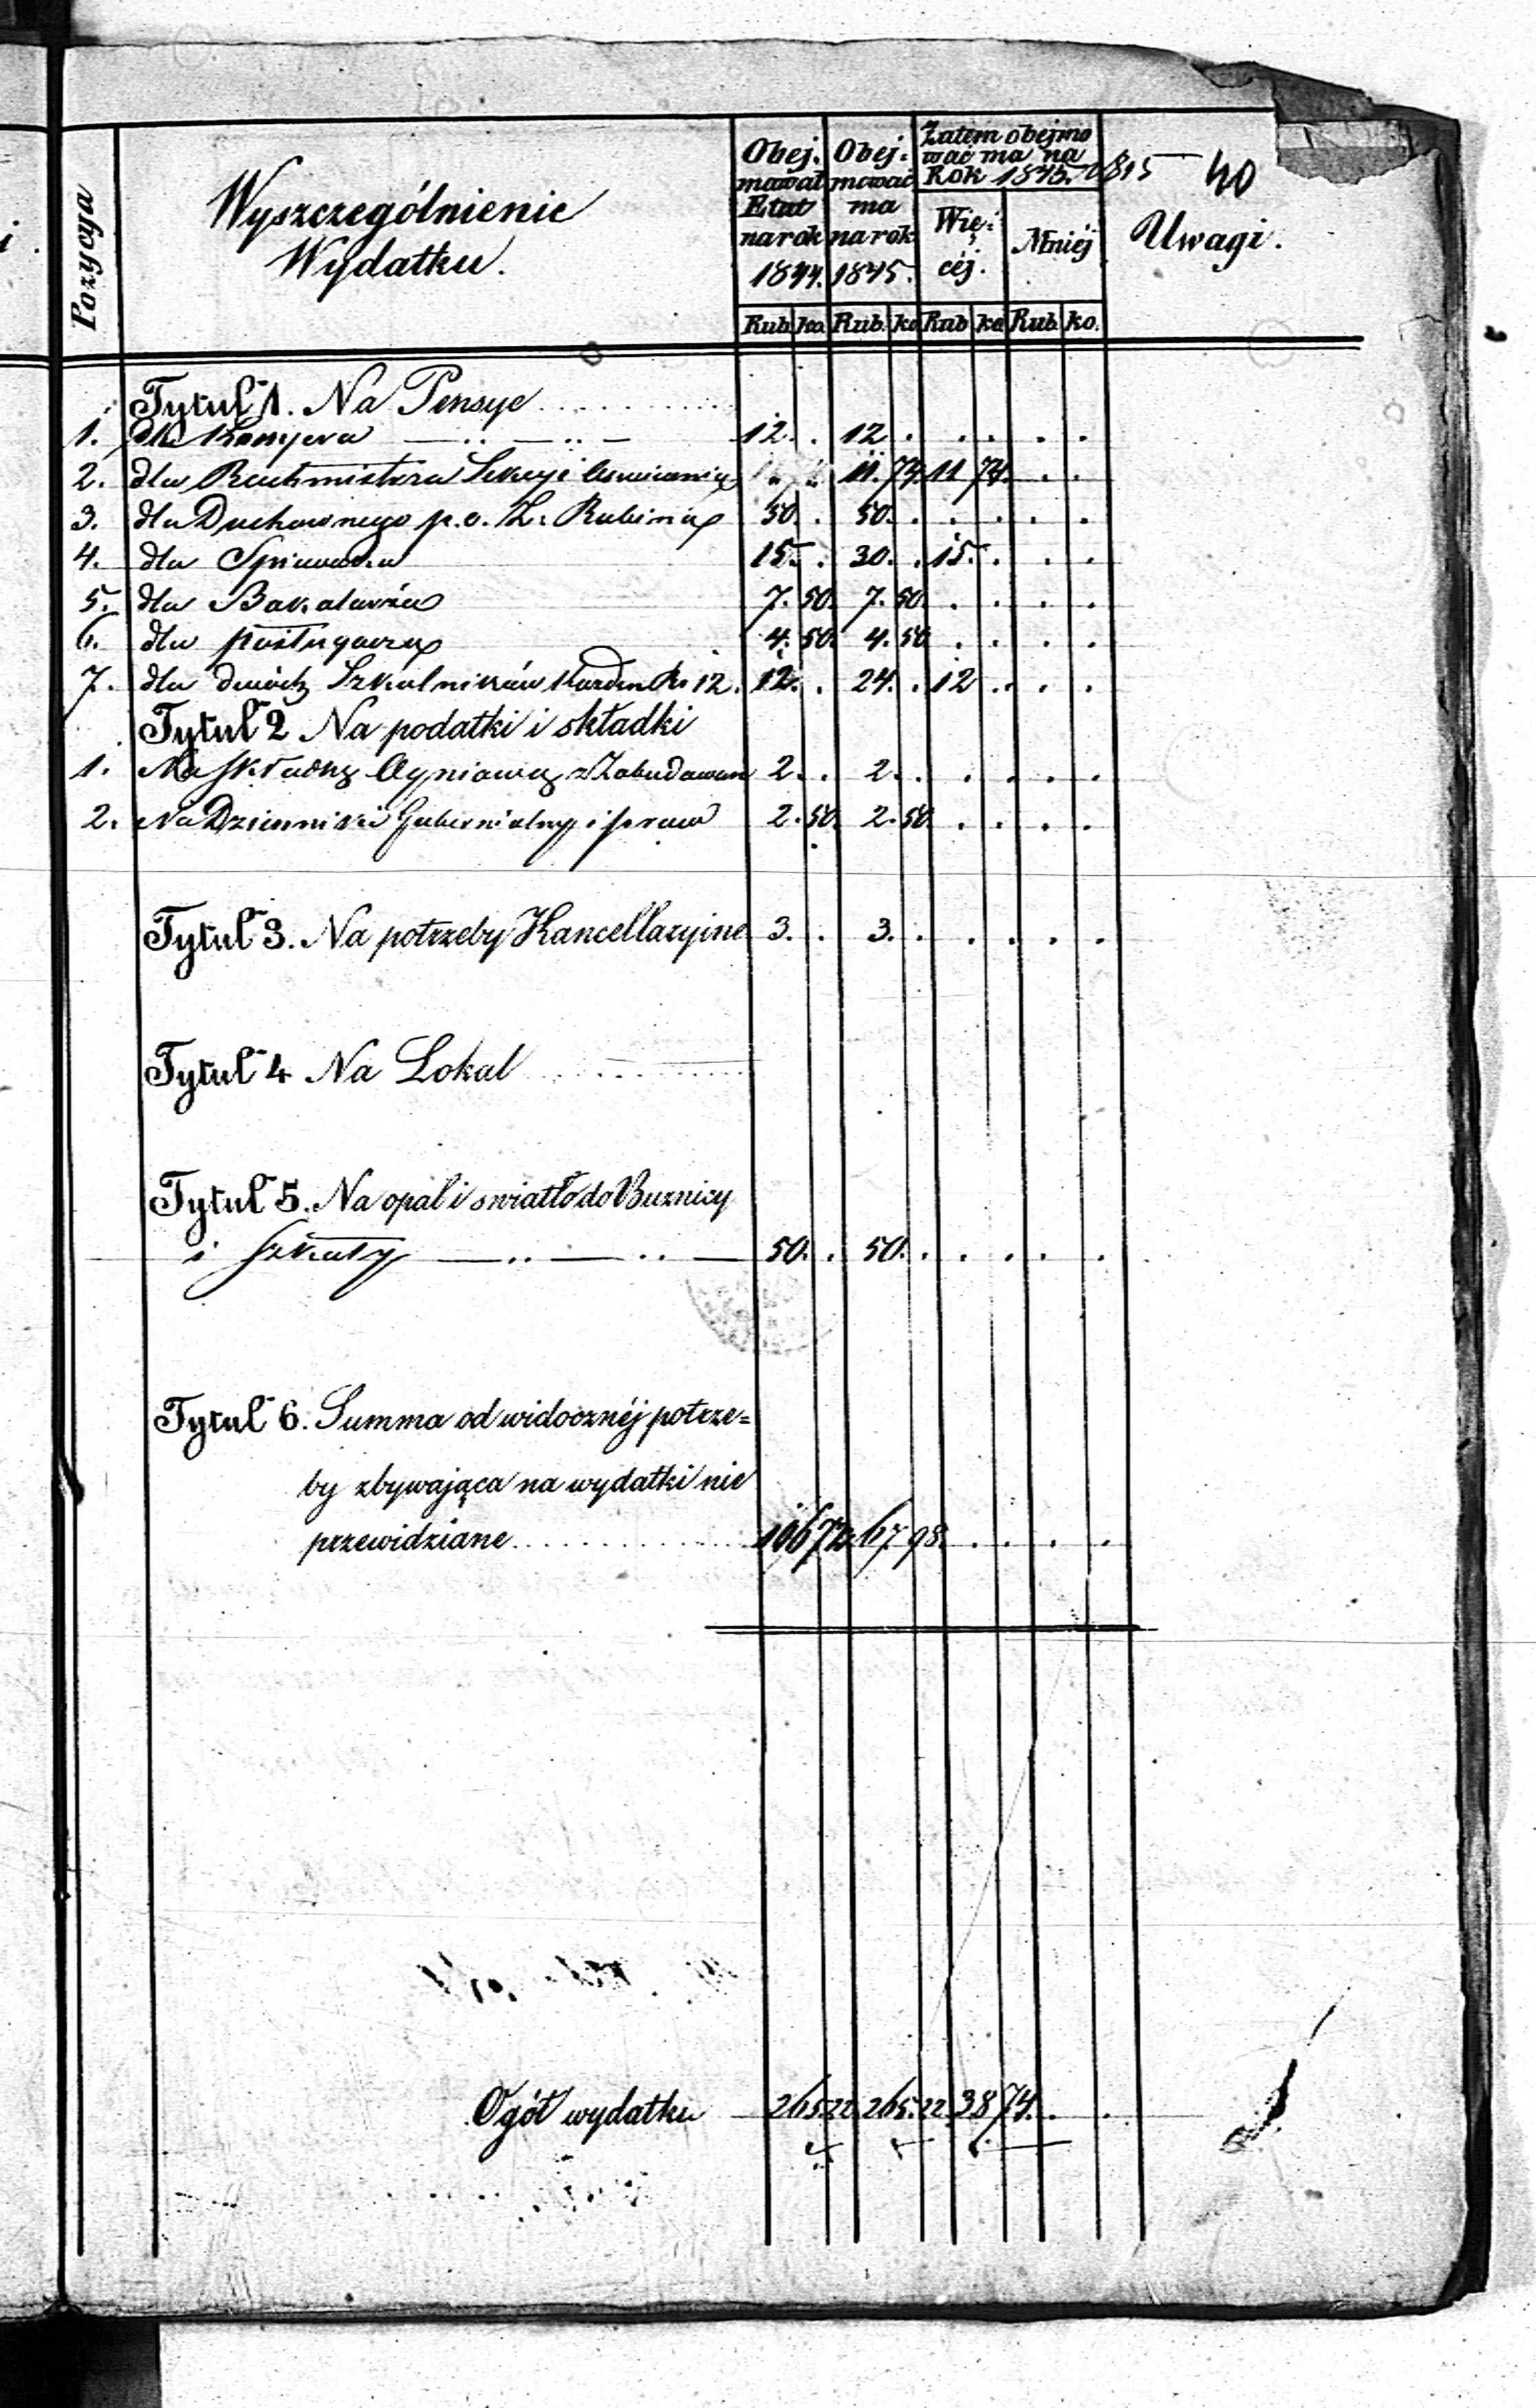 40
Pozycyja
Wyszczególnienie
Wydatku.
Obej-
mował
Etat
na rok
1844.
Obej-
mować
ma
na rok
1845.
Zatem obejmo
wać ma na
Rok 1845.
Wię-
céj.
Mniéj
Uwagi.
Rub. ko. Rub. ko Rub ko Rub. ko.
Tytuł 1. Na Pensye
1. dla Kassyera 12. . 12 . . . . .
2. dla Rachmistrza Sekcyi 11. 74. 11 74. . .
3. dla Duchownego p. o. Z. Rabina 50 . 50. . . . . .
4. dla Spiewaka 15. . 30. . 15. . . .
5. dla Bakałarza 7. 50. 7. 50. . . . .
6. dla posługacza 4. 50. 4. 50 . . . .
7. dla dwóch Szkolników każden Rs 12. 12. . 24. . 12 . . .
Tytuł 2 Na podatki i składki
1. Na składkę Ogniową z Zabudowań 2. . 2. . . . . .
2. Na Dziennik Gubernialny i praw 2. 50. 2. 50 . . . .
Tytuł 3. Na potrzeby Kancellaryine 3. . 3. . . . . .
Tytuł 4 Na Lokal
Tytuł 5. Na opał i swiatło do Buznicy
i Szkoły 50. . 50. . . . . .
Tytuł 6. Summa od widocznéj potrze=
by zbywająca na wydatki nie
przewidziane 106 72 67. 98. . . . .
Ogół wydatku 265 22 265. 22. 38 74. . .